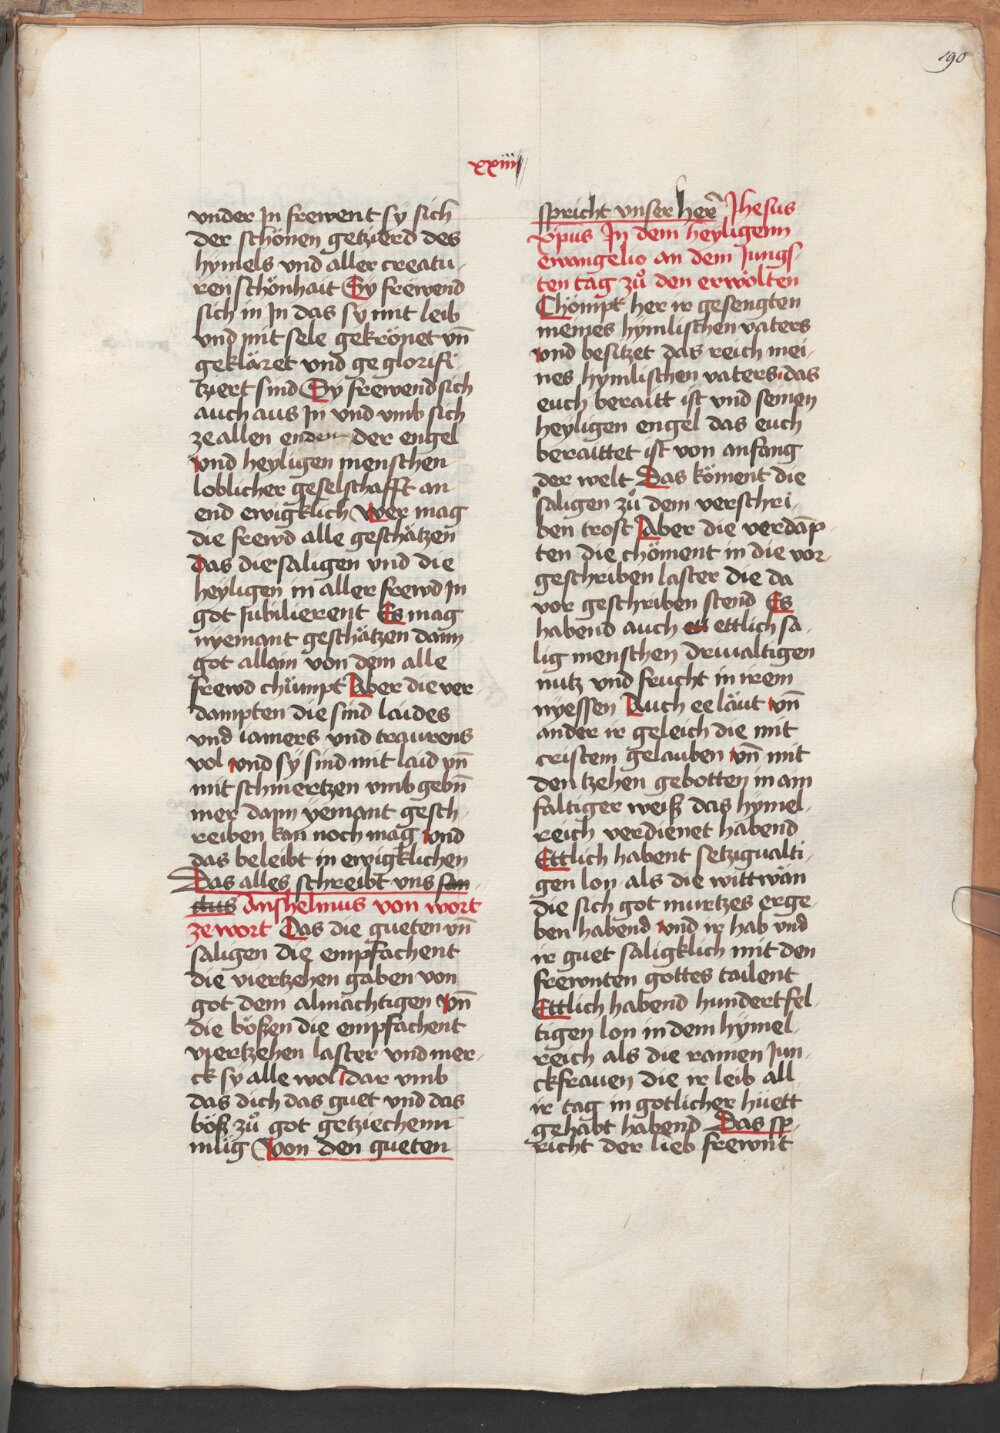 190
xxiiij
vnder In frewent sy sich
der schönen getzierd des
hymels vnd aller creatu-
ren schönhait Sy frewend
sich in In das sy mit leib
vnd mit sele gekrönet vn̄
gekläret vnd ge glorifi
tziert sind Sy frewend sich
auch aus In vnd vmb sich
ze allen enden der engel
vnd heyligen menschen
loblicher geselschafft an
end ewigklich Wer mag
die frewd alle geschätzen
Das die saligen vnd die
heyligen in aller frewd In
got Iubilierent Es mag
nyemant geschätzen dann
got allain von dem alle
frewd chümpt Aber die ver
dampten die sind laides
vnd iamers vnd traurens
vol vnd sy sind mit laid vn̄
mit schmertzen vmb gebn̄
mer dann yemant gesch-
reiben kan noch mag vnd
das beleibt in ewigklichen
Das alles schreibt vns san-
ctus Anshelmus von wort
ze wort Das die gueten vn̄
saligen die empfachent
die viertzehen gaben von
got dem almächtigen vn̄
die bößen die empfachent
viertzehen laster vnd mer-
ck sy alle wol dar vmb
das dich das guet vnd das
böß zů got getziechenn
müg Von den gueten
spricht vnser her̄ Jhesus
xp̄us In dem heyligenn
ewangelio an dem Jungs-
ten tāg zů den erwölten
Chömpt her ir gesengten
meines hymlischen vaters
vnd besitzet das reich mei-
nes hymlischen vaters das
euch beraitt ist vnd seinen
heyligen engel das euch
beraittet ist von anfang
der welt Das köment die
saligen zů dem verschri-
ben trost Aber die verdāp-
ten die chöment in die vor-
geschriben laster die da
vor geschriben stend Es
habend auch ett ettlich sa-
lig menschen driualtigen
nutz vnd frucht in irem
nyessen Auch ee läut vn̄
ander ir geleich die mit
cristem gelauben vn̄ mit
den tzehen gebotten in ain
faltiger weiß das hymel-
reich verdienet habend
Ettlich habent setzigualti-
gen lon als die wittwän
die sich got nurtzes erge-
ben habend vnd ir hab vnd
ir guet saligklich mit den
frewnten gottes tailent
Ettlich habend hundertfel-
tigen lon in dem hymel-
reich als die rainen Jun-
ckfrauen die ir leib all
ir tag in gotlicher hüett
gehabt habend Das sp-
richt der lieb frewnt